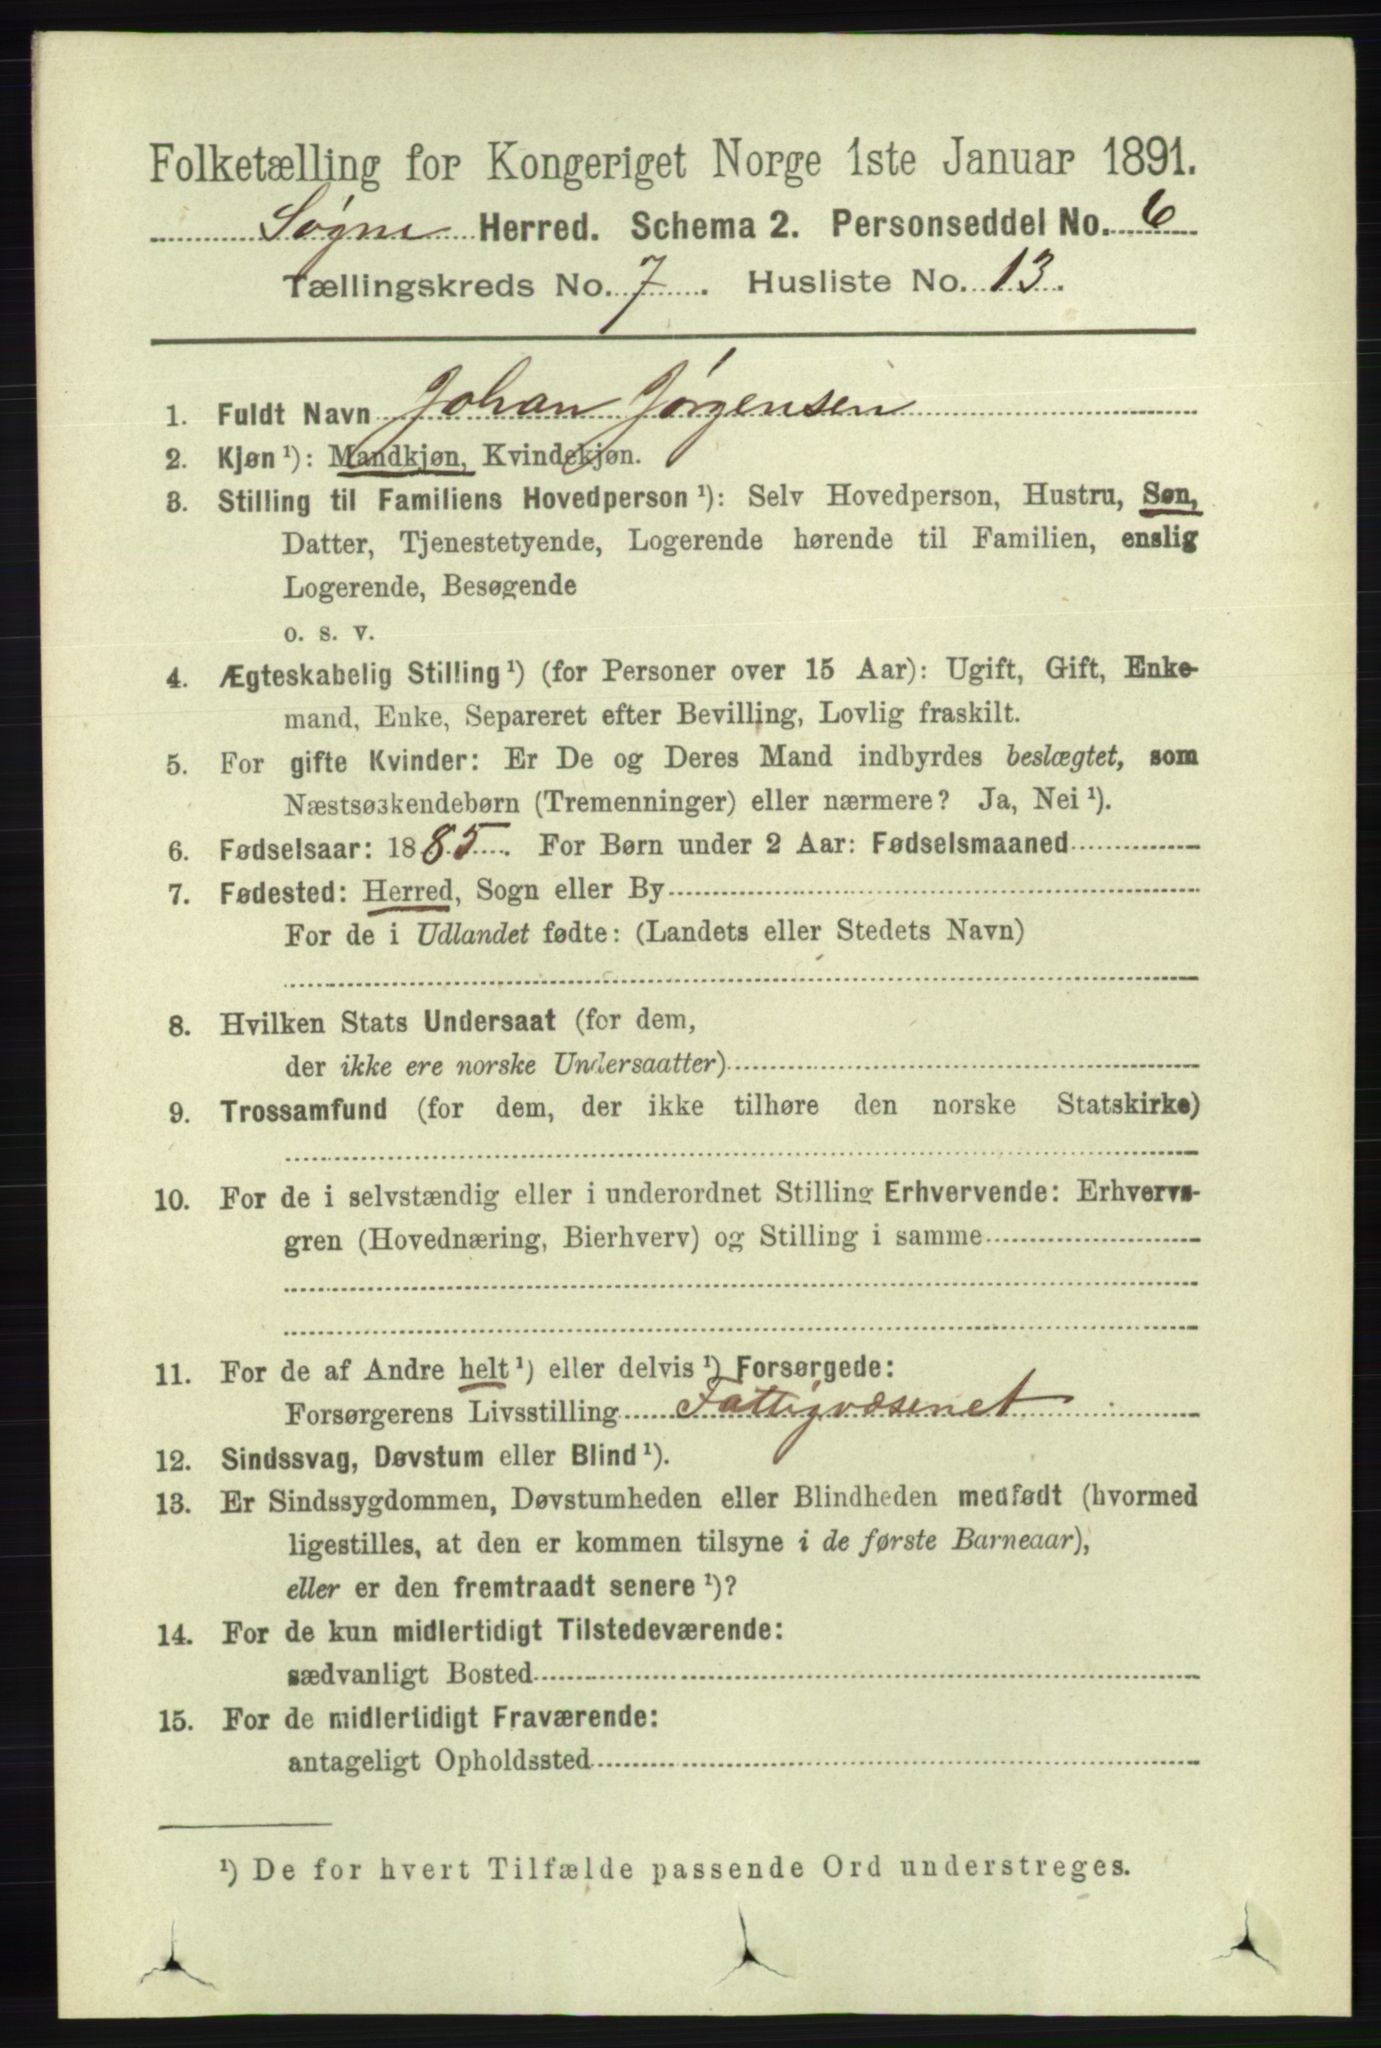 Folketælling for Kongeriget Norge 1ste Januar 1891.
Søgne Herred. Schema 2. Personseddel No. 6
Tællingskreds No. 7. Husliste No. 13.
1. Fuldt Navn Johan Jörgensen
2. Kjøn ¹): Mandkjøn, Kvindekjøn.
3. Stilling til Familiens Hovedperson ¹): Selv Hovedperson, Hustru, Søn,
Datter, Tjenestetyende, Logerende hørende til Familien, enslig
Logerende, Besøgende
o. s. v.
4. Ægteskabelig Stilling ¹) (for Personer over 15 Aar): Ugift, Gift, Enke-
mand, Enke, Separeret efter Bevilling, Lovlig fraskilt.
5. For gifte Kvinder: Er De og Deres Mand indbyrdes beslægtet, som
Næstsøskendebørn (Tremenninger) eller nærmere? Ja, Nei ¹).
6. Fødselsaar: 1885. For Børn under 2 Aar: Fødselsmaaned
7. Fødested: Herred, Sogn eller By
For de i Udlandet fødte: (Landets eller Stedets Navn)
8. Hvilken Stats Undersaat (for dem,
der ikke ere norske Undersaatter)
9. Trossamfund (for dem, der ikke tilhøre den norske Statskirke)
10. For de i selvstændig eller i underordnet Stilling Erhvervende: Erhvervs-
gren (Hovednæring, Bierhverv) og Stilling i samme
11. For de af Andre helt ¹) eller delvis ¹) Forsørgede:
Forsørgerens Livsstilling Fattigvæsenet
12. Sindssvag, Døvstum eller Blind ¹).
13. Er Sindssygdommen, Døvstumheden eller Blindheden medfødt (hvormed
ligestilles, at den er kommen tilsyne i de første Barneaar),
eller er den fremtraadt senere ¹)?
14. For de kun midlertidigt Tilstedeværende:
sædvanligt Bosted
15. For de midlertidigt Fraværende:
antageligt Opholdssted
¹) De for hvert Tilfælde passende Ord understreges.